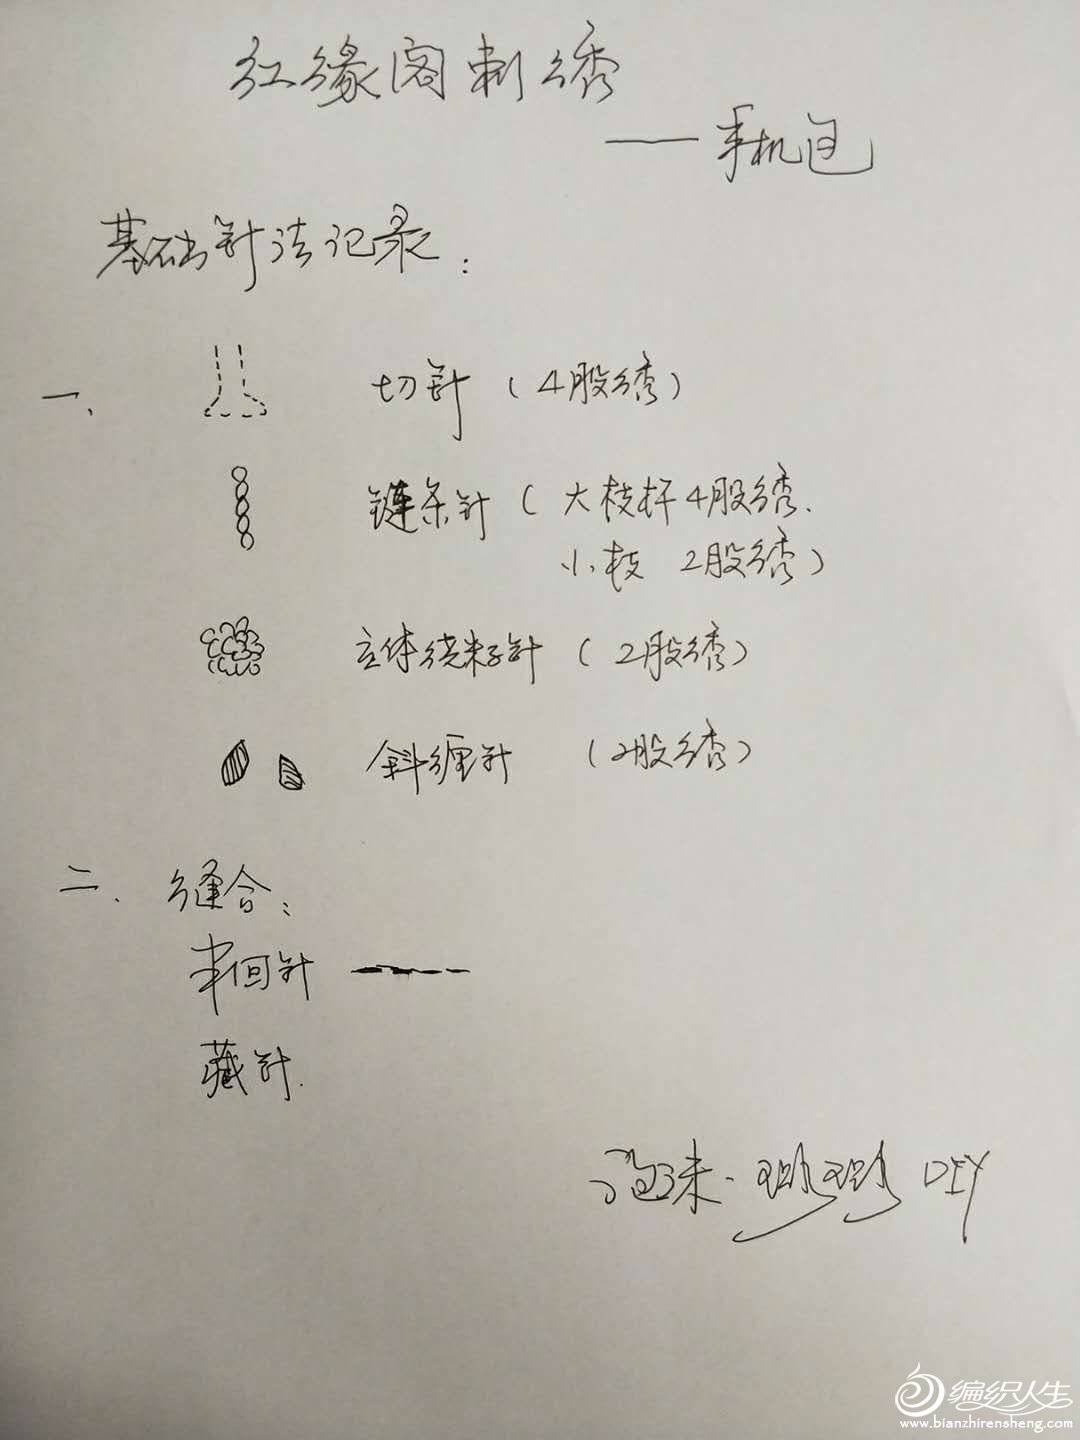 红缘阁刺绣
——手机包
基础针法记录：
一、 切针（4股绣）
链条针（大枝杆4股绣.
小枝 2股绣）
立体绕籽针（2股绣）
斜缠针 （2股绣）
二、缝合：
半回针
藏针.
DIY
编织人生
www.bianzhirensheng.com